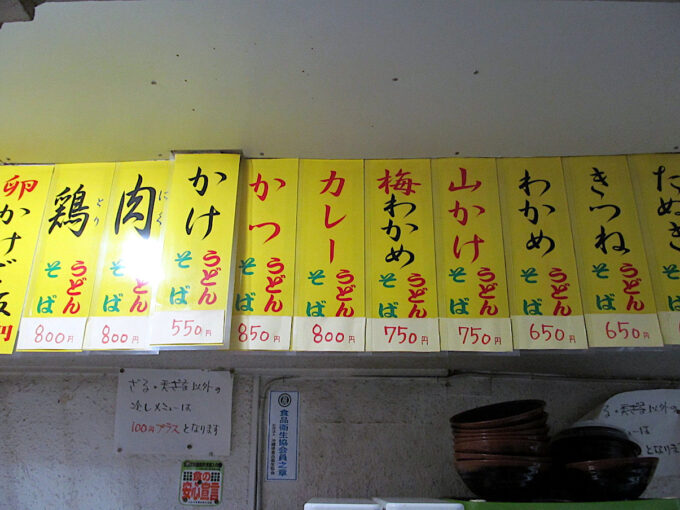 卵かけご飯
円
鶏
とり
うどん
そば
800円
肉
にく
うどん
そば
800円
かけ
うどん
そば
550円
かつ
うどん
そば
850円
カレー
うどん
そば
800円
梅わかめ
うどん
そば
750円
山かけ
うどん
そば
750円
わかめ
うどん
そば
650円
きつね
うどん
そば
650円
たぬき
ざる・天ざる以外の
冷しメニューは
100円プラスとなります
食品衛生協会員之章
食の
安心宣言
以外の
は
となります